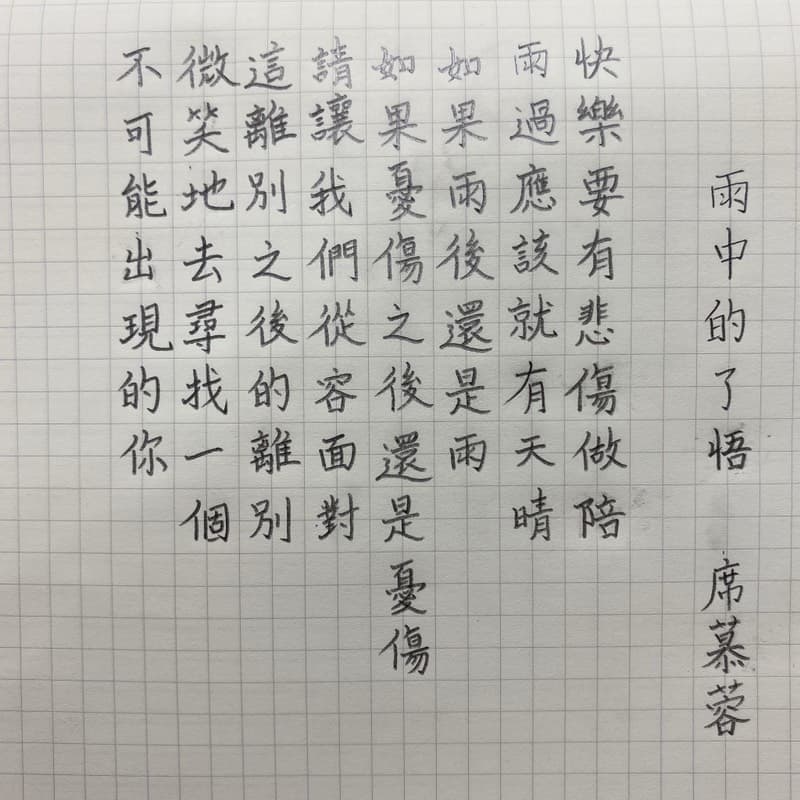 雨中的了悟 席慕蓉
快樂要有悲傷做陪
雨過應該就有天晴
如果雨後還是雨
如果憂傷之後還是憂傷
請讓我們從容面對
這離別之後的離別
微笑地去尋找一個
不可能出現的你